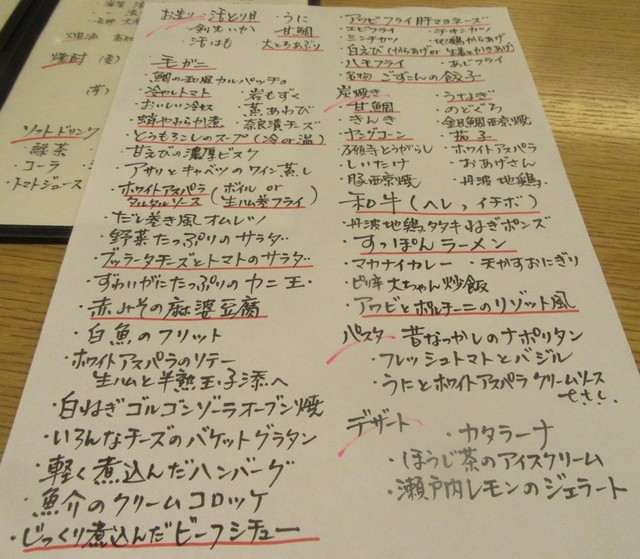 お造り・活とり貝 ・うに
・剣先いか ・甘鯛
・活はも ・大とろあぶり
・毛ガニ
・鯛の和風カルパッチョ
・冷やしトマト ・岩もずく
・おいしい冷奴 ・蒸あわび
・蛸やわらか煮 ・奈良漬チーズ
・とうもろこしのスープ(冷or温)
・甘えびの濃厚ビスク
・アサリとキャベツのワイン蒸し
・ホワイトアスパラ(ボイル or
タルタルソース 生ハム巻フライ)
・だし巻き風オムレツ
・野菜たっぷりのサラダ
・ブッラータチーズとトマトのサラダ
・ずわいがにたっぷりのカニ玉
・赤みその麻婆豆腐
・白魚のフリット
・ホワイトアスパラのソテー
生ハムと半熟玉子添へ
・白ねぎゴルゴンゾーラオーブン焼
・いろんなチーズのバケットグラタン
・軽く煮込んだハンバーグ
・魚介のクリームコロッケ
・じっくり煮込んだビーフシチュー
・アワビフライ肝マヨネーズ
・エビフライ ・チキンカツ
・ミンチカツ ・地鶏からあげ
・白えび(からあげor生姜とかきあげ)
・ハモフライ ・あじフライ
・名物 ごずこんの餃子
炭焼き ・うなぎ
・甘鯛 ・のどぐろ
・きんき ・金目鯛西京焼
・ヤングコーン ・茄子
・万願寺とうがらし ・ホワイトアスパラ
・しいたけ ・おあげさん
・豚西京焼 ・丹波地鶏
・和牛(ヘレ、イチボ)
・丹波地鶏タタキねぎポンズ
・すっぽんラーメン
・マカナイカレー ・天かすおにぎり
・ピリ辛 大ちゃん炒飯
・アワビとポルチーニのリゾット風
パスタ ・昔なつかしのナポリタン
・フレッシュトマトとバジル
・うにとホワイトアスパラ クリームソース
デザート ・カタラーナ
・ほうじ茶のアイスクリーム
・瀬戸内レモンのジェラート
焼酎
ソフトドリンク
・緑茶
・コーラ
・トマトジュース